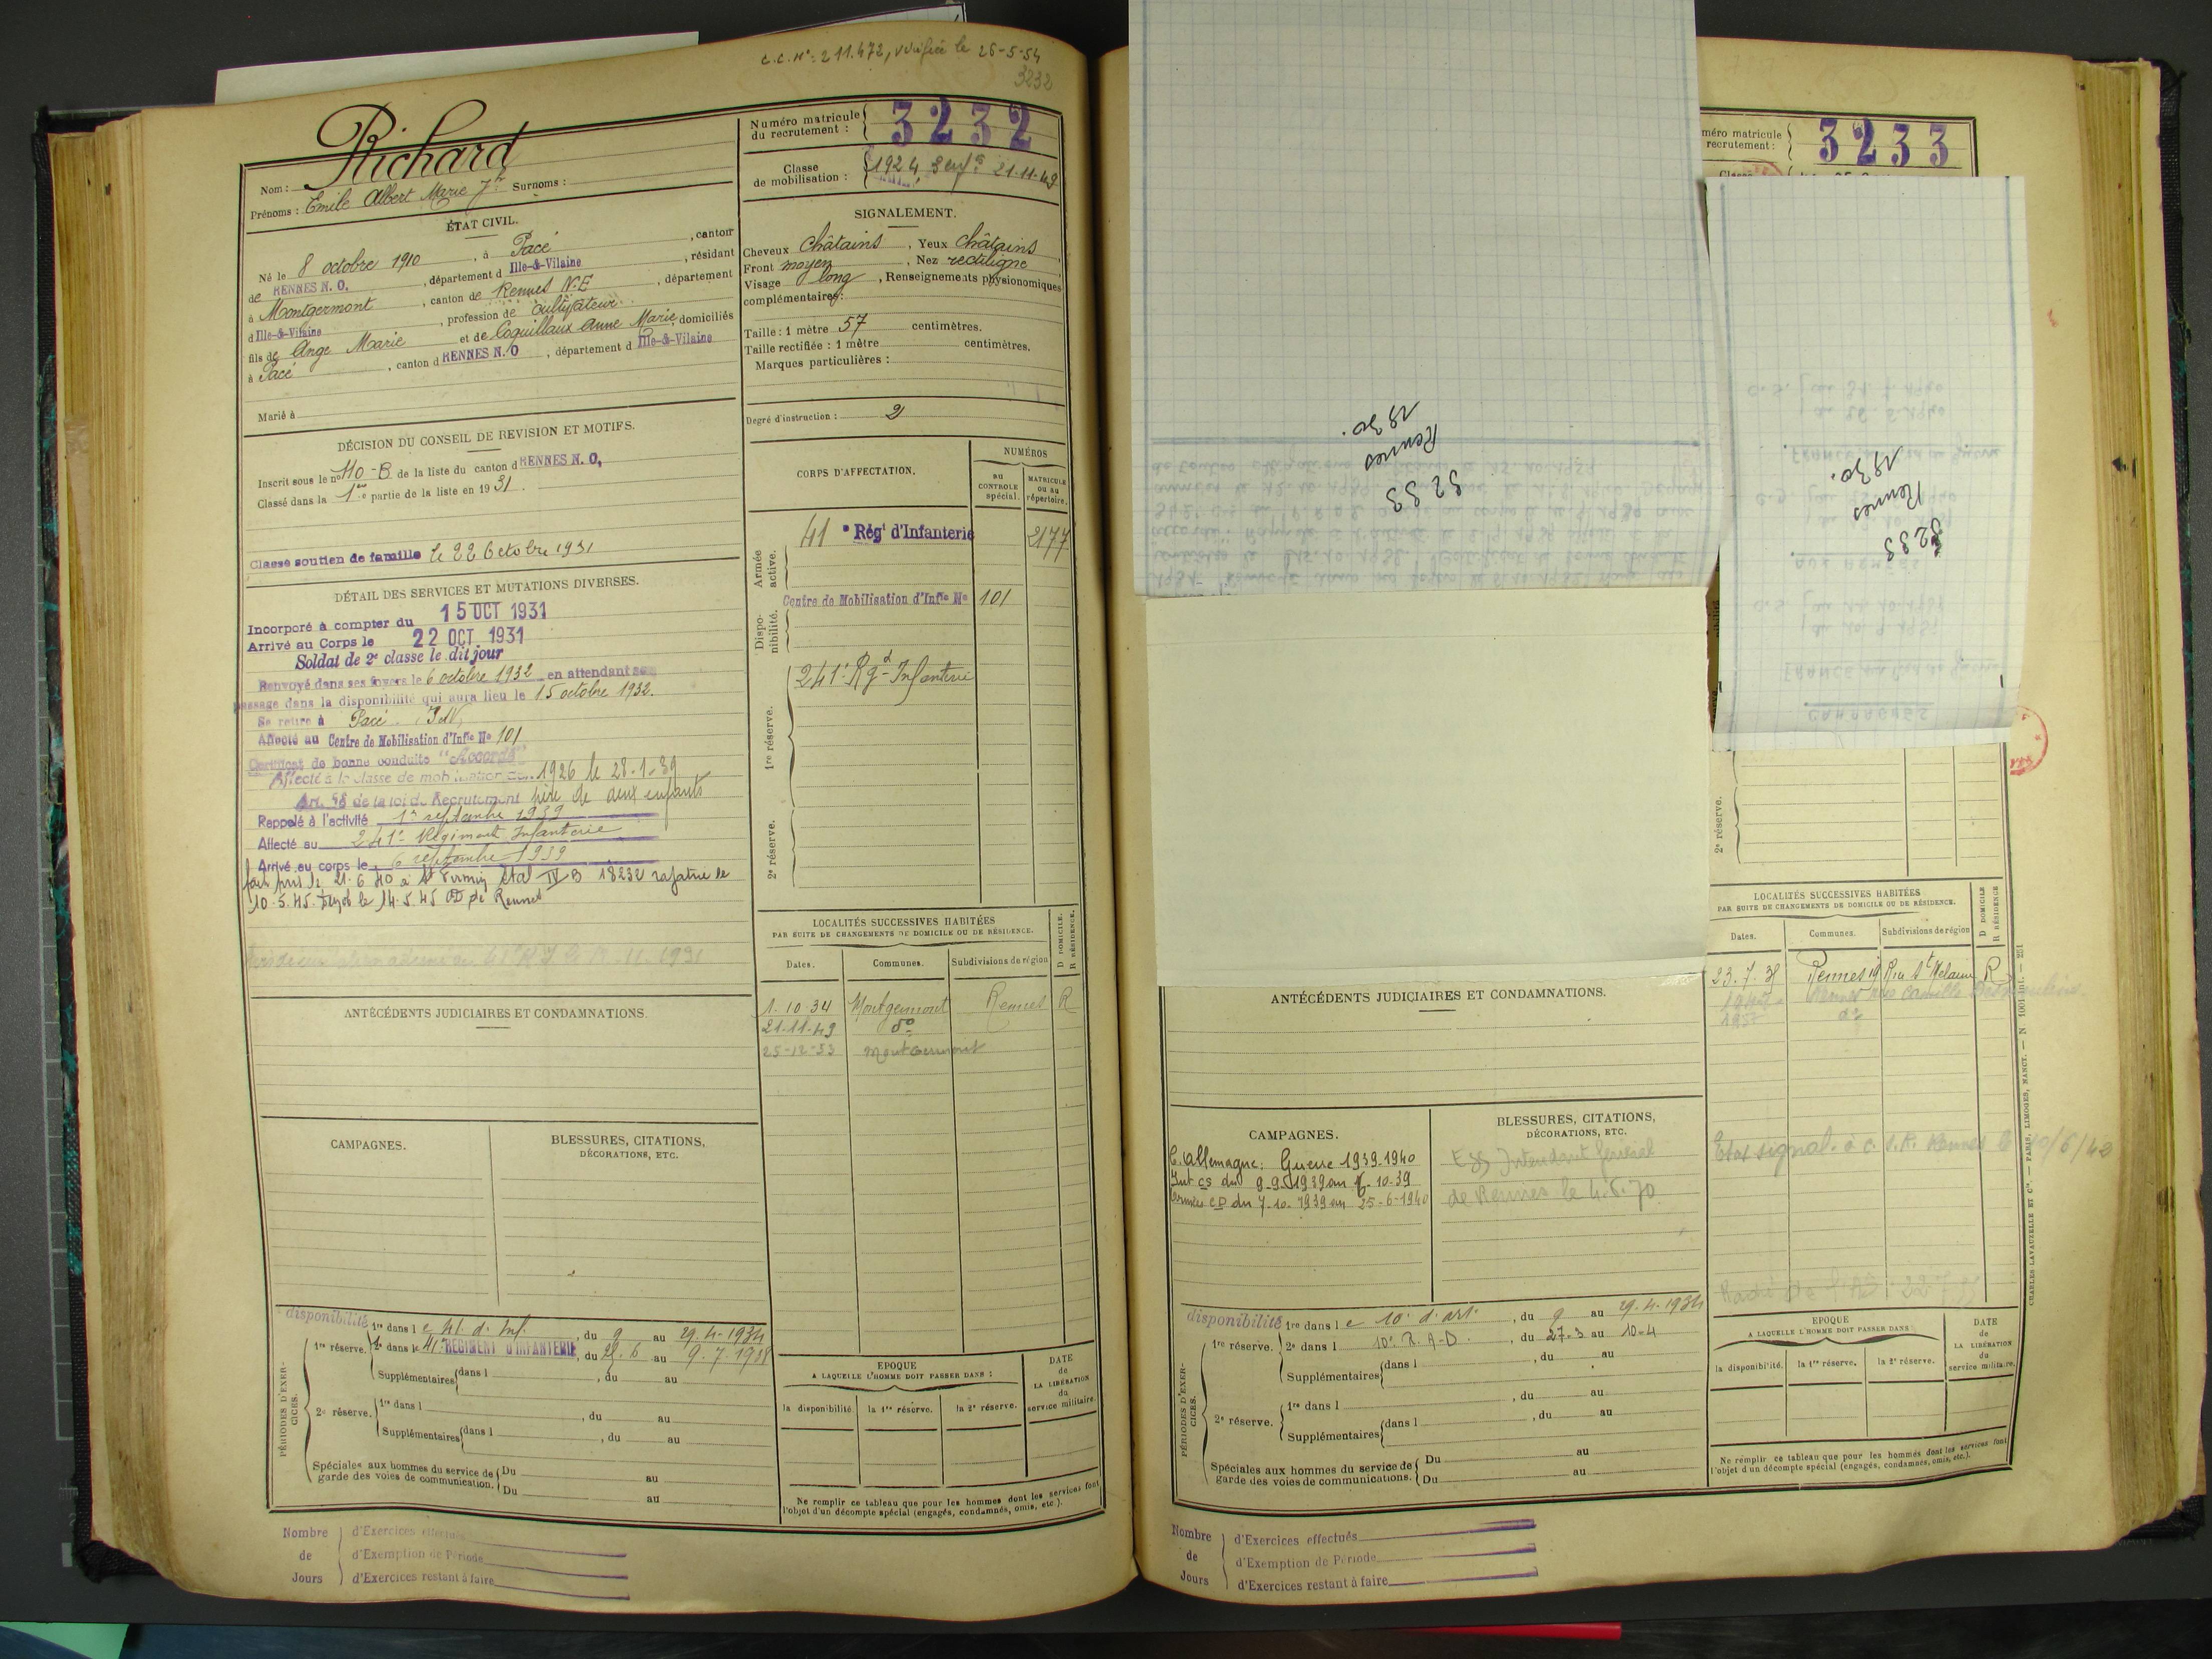 C.C. N°: 211.472, vérifiée le 26-5-54
3232
Richard
Nom :
Prénoms : Emile Albert Marie Jh Surnoms :
ÉTAT CIVIL.
Né le 8 octobre 1910, à Pacé, canton
de RENNES N. O., département d Ille-&-Vilaine, résidant
à Montgermont, canton de Rennes N.E, département
d Ille-&-Vilaine, profession de cultivateur
fils de Ange Marie et de Coquillaux Anne Marie, domiciliés
à Pacé, canton d RENNES N. O, département d Ille-&-Vilaine
Marié à
DÉCISION DU CONSEIL DE REVISION ET MOTIFS.
Inscrit sous le n° 110-B de la liste du canton d RENNES N. O,
Classé dans la 1re partie de la liste en 1931.
Classé soutien de famille le 22 Octobre 1931
DÉTAIL DES SERVICES ET MUTATIONS DIVERSES.
Incorporé à compter du 15 OCT 1931
Arrivé au Corps le 22 OCT 1931
Soldat de 2e classe le dit jour
Renvoyé dans ses foyers le 6 octobre 1932 en attendant son
passage dans la disponibilité qui aura lieu le 15 octobre 1932.
Se retire à Pacé I&V
Affecté au Centre de Mobilisation d'Infie No 101
Certificat de bonne conduite "Accordé"
Affecté à la classe de mobilisation de 1926 le 28-1-39
Art. 58 de la loi du Recrutement père de deux enfants
Rappelé à l'activité 1er septembre 1939
Affecté au 241e Régiment Infanterie
Arrivé au corps le 6 septembre 1939
fait pris. le 21.6.40 à St Firmin Stal IV B 18232 rapatrié le
10.5.45. le 14.5.45 CD de Rennes
ANTÉCÉDENTS JUDICIAIRES ET CONDAMNATIONS.
CAMPAGNES.
BLESSURES, CITATIONS,
DÉCORATIONS, ETC.
PÉRIODES D'EXERCICES.
disponibilité 1re dans l e 41. d. Inf., du 9 au 29.4.1934
1re réserve. 2e dans le 41e REGIMENT D'INFANTERIE, du 28.6 au 9.7.1938
Supplémentaires dans l, du au
2e réserve. 1re dans l, du au
Supplémentaires dans l, du au
Spéciales aux hommes du service de garde des voies de communication. Du au
Du au
Nombre de Jours
d'Exercices effectués
d'Exemption de Période
d'Exercices restant à faire
Numéro matricule du recrutement : 3232
Classe de mobilisation : 1924 3 enfts 21-11-49
SIGNALEMENT.
Cheveux Châtains, Yeux Châtains
Front moyen, Nez rectiligne
Visage long, Renseignements physionomiques
complémentaires:
Taille : 1 mètre 57 centimètres.
Taille rectifiée : 1 mètre centimètres.
Marques particulières :
Degré d'instruction : 2
CORPS D'AFFECTATION.
NUMÉROS
AU CONTROLE spécial.
MATRICULE ou au répertoire.
Armée active.
41 e Régt d'Infanterie 2177
Disponibilité.
Centre de Mobilisation d'Infie No 101
1re réserve.
241e Rgt Infanterie
2e réserve.
LOCALITÉS SUCCESSIVES HABITÉES
PAR SUITE DE CHANGEMENTS DE DOMICILE OU DE RÉSIDENCE.
D DOMICILE. R RÉSIDENCE.
Dates. Communes. Subdivisions de région
1.10.34 Montgermont Rennes R
21-11-49 do
25-12-53 Montgermont
EPOQUE
A LAQUELLE L'HOMME DOIT PASSER DANS :
la disponibilité. la 1re réserve. la 2e réserve.
DATE de LA LIBÉRATION du service militaire.
Ne remplir ce tableau que pour les hommes dont les services font
l'objet d'un décompte spécial (engagés, condamnés, omis, etc.).
3233
Rennes
1930.
3233
Rennes
1930.
ANTÉCÉDENTS JUDICIAIRES ET CONDAMNATIONS.
CAMPAGNES.
C. Allemagne: Guerre 1939.1940
Int cs du 9-9-1939 au 6-10-39
Armées CD du 7-10-1939 au 25-6-1940
BLESSURES, CITATIONS,
DÉCORATIONS, ETC.
Exp Intendant Général
de Rennes le 4.6.70
PÉRIODES D'EXERCICES.
disponibilité 1re dans l e 10e d'art., du 9 au 29.4.1934
1re réserve. 2e dans l 10e R.A.D., du 27-3 au 10-4
Supplémentaires dans l, du au
, du au
2e réserve. 1re dans l
Supplémentaires dans l, du au
Spéciales aux hommes du service de garde des voies de communications. Du au
Du au
Nombre de Jours
d'Exercices effectués
d'Exemption de Période
d'Exercices restant à faire
méro matricule recrutement : 3233
2e réserve.
LOCALITÉS SUCCESSIVES HABITÉES
PAR SUITE DE CHANGEMENTS DE DOMICILE OU DE RÉSIDENCE.
D DOMICILE R RÉSIDENCE
Dates. Communes. Subdivisions de région
23.7.38 Rennes 19 Rue St Melaine R
Rennes rue Camille Desmoulins
do
Etat signal. à C.S.R. Rennes le 10/6/40
EPOQUE
A LAQUELLE L'HOMME DOIT PASSER DANS :
la disponibilité. la 1re réserve. la 2e réserve.
DATE de LA LIBÉRATION du service militaire.
Ne remplir ce tableau que pour les hommes dont les services font
l'objet d'un décompte spécial (engagés, condamnés, omis, etc.).
CHARLES LAVAUZELLE ET Cie. — PARIS, LIMOGES, NANCY. — N° 1001 int. — 251